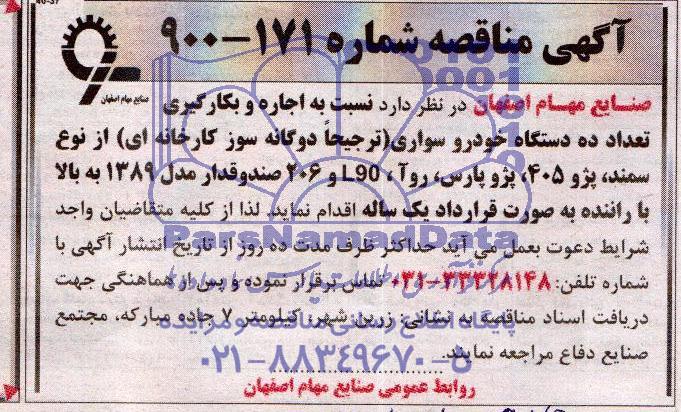 آگهی مناقصه شماره ۱۷۱-۹۰۰
صنایع مهام اصفهان
صنایع مهام اصفهان در نظر دارد نسبت به اجاره و بکارگیری
تعداد ده دستگاه خودرو سواری(ترجیحاً دوگانه سوز کارخانه ای) از نوع
سمند، پژو ۴۰۵، پژو پارس، روآ ، L90 و ۲۰۶ صندوقدار مدل ۱۳۸۹ به بالا
با راننده به صورت قرارداد یک ساله اقدام نماید. لذا از کلیه متقاضیان واجد
شرایط دعوت بعمل می آید حداکثر ظرف مدت ده روز از تاریخ انتشار آگهی با
شماره تلفن: ۰۳۱-۳۳۳۲۸۱۴۸ تماس برقرار نموده و پس از هماهنگی جهت
دریافت اسناد مناقصه به نشانی: زرین شهر، کیلومتر ۷ جاده مبارکه، مجتمع
صنایع دفاع مراجعه نمایند.
روابط عمومی صنایع مهام اصفهان
ParsNamadData
پایگاه اطلاع رسانی مناقصه و مزایده
۰۲۱-۸۸۳۴۹۶۷۰-۵